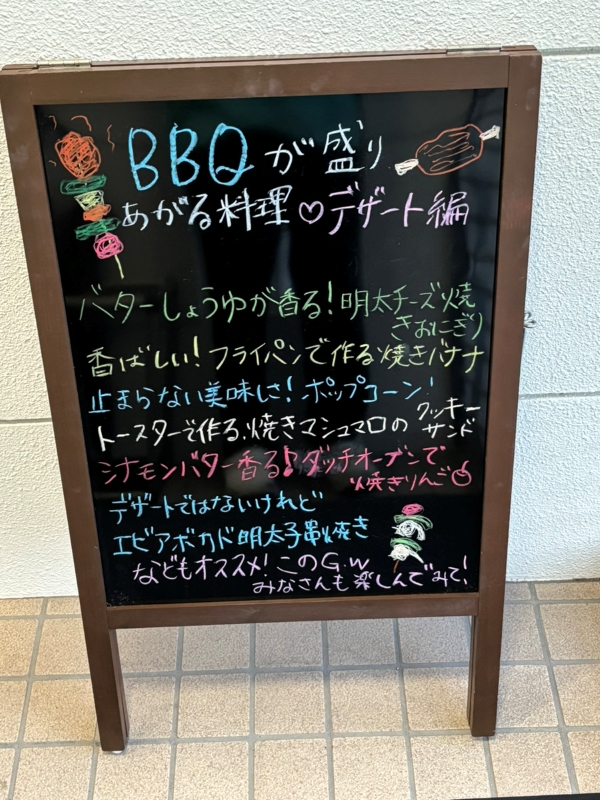 BBQが盛り
あがる料理♡デザート編
バターしょうゆが香る！明太チーズ焼
きおにぎり
香ばしい！フライパンで作る焼きバナナ
止まらない美味しさ！ポップコーン！
トースターで作る、焼きマシュマロのクッキー
サンド
シナモンバター香る♪ダッチオーブンで
焼きりんご
デザートではないけれど
エビアボカド明太子串焼き
などもオススメ！このG.W
みなさんも楽しんでみて！